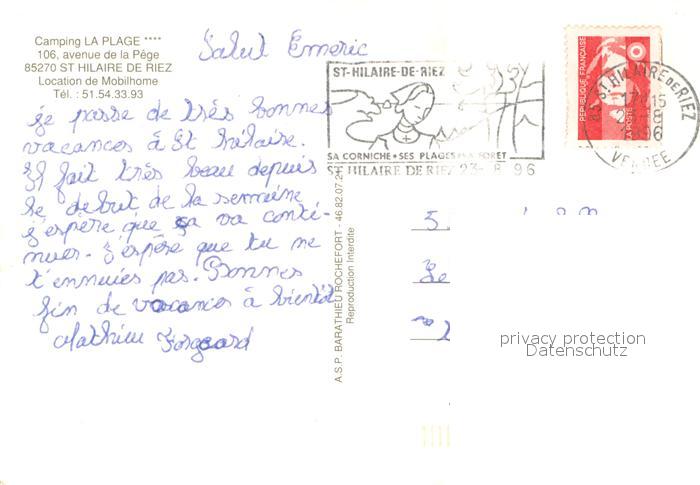 Camping LA PLAGE ****
106, avenue de la Pège
85270 ST HILAIRE DE RIEZ
Location de Mobilhome
Tél. : 51.54.33.93
Salut Emeric
je passe de très bonnes
vacances à St hilaire.
Il fait très beau depuis
le debut de la semaine
j'espère que ça va conti-
nuer. J'espère que tu ne
t'ennuies pas. Bonnes
fin de vacances à bientôt
Mathieu
ST-HILAIRE-DE-RIEZ
SA CORNICHE • SES PLAGES • SA FORET
ST HILAIRE DE RIEZ 23- 8 96
REPUBLIQUE FRANÇAISE
LA POSTE
85 ST. HILAIRE DE RIEZ
17H15
23-8
1996
VENDEE
A.S.P. BARATHIEU ROCHEFORT - 46.82.07.2
Reproduction Interdite
privacy protection
Datenschutz